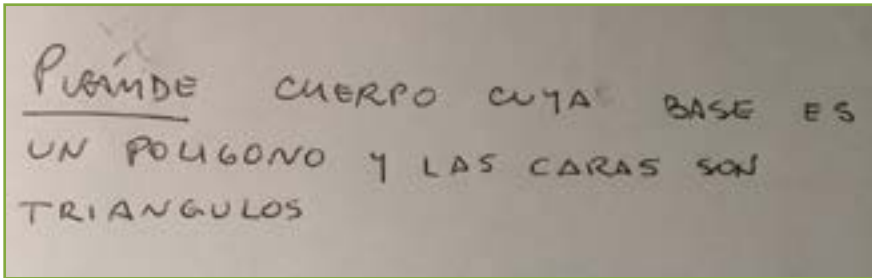 PIRÁMIDE CUERPO CUYA BASE ES
UN POLIGONO Y LAS CARAS SON
TRIANGULOS